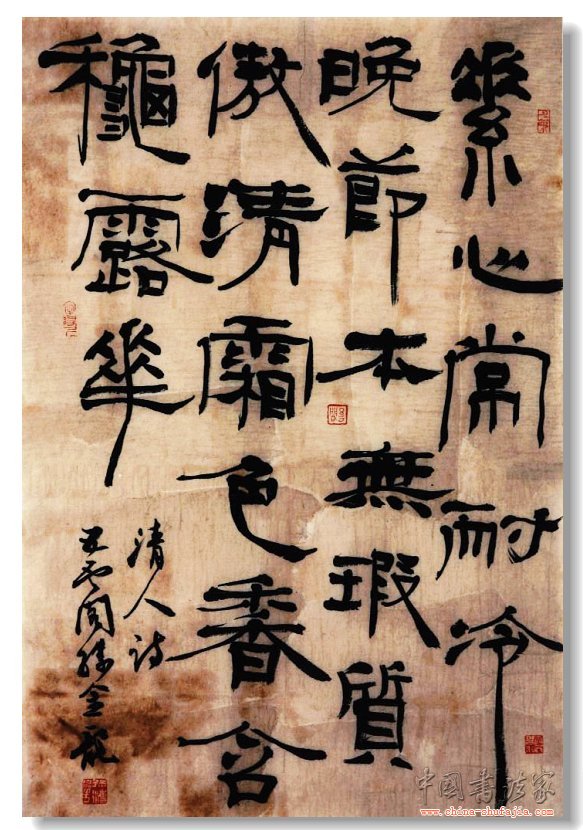 素心常耐冷
晚節本無瑕質
傲清霜色香含
龝露華
清人詩
金龍
中國書法家
www.china-shufajia.com